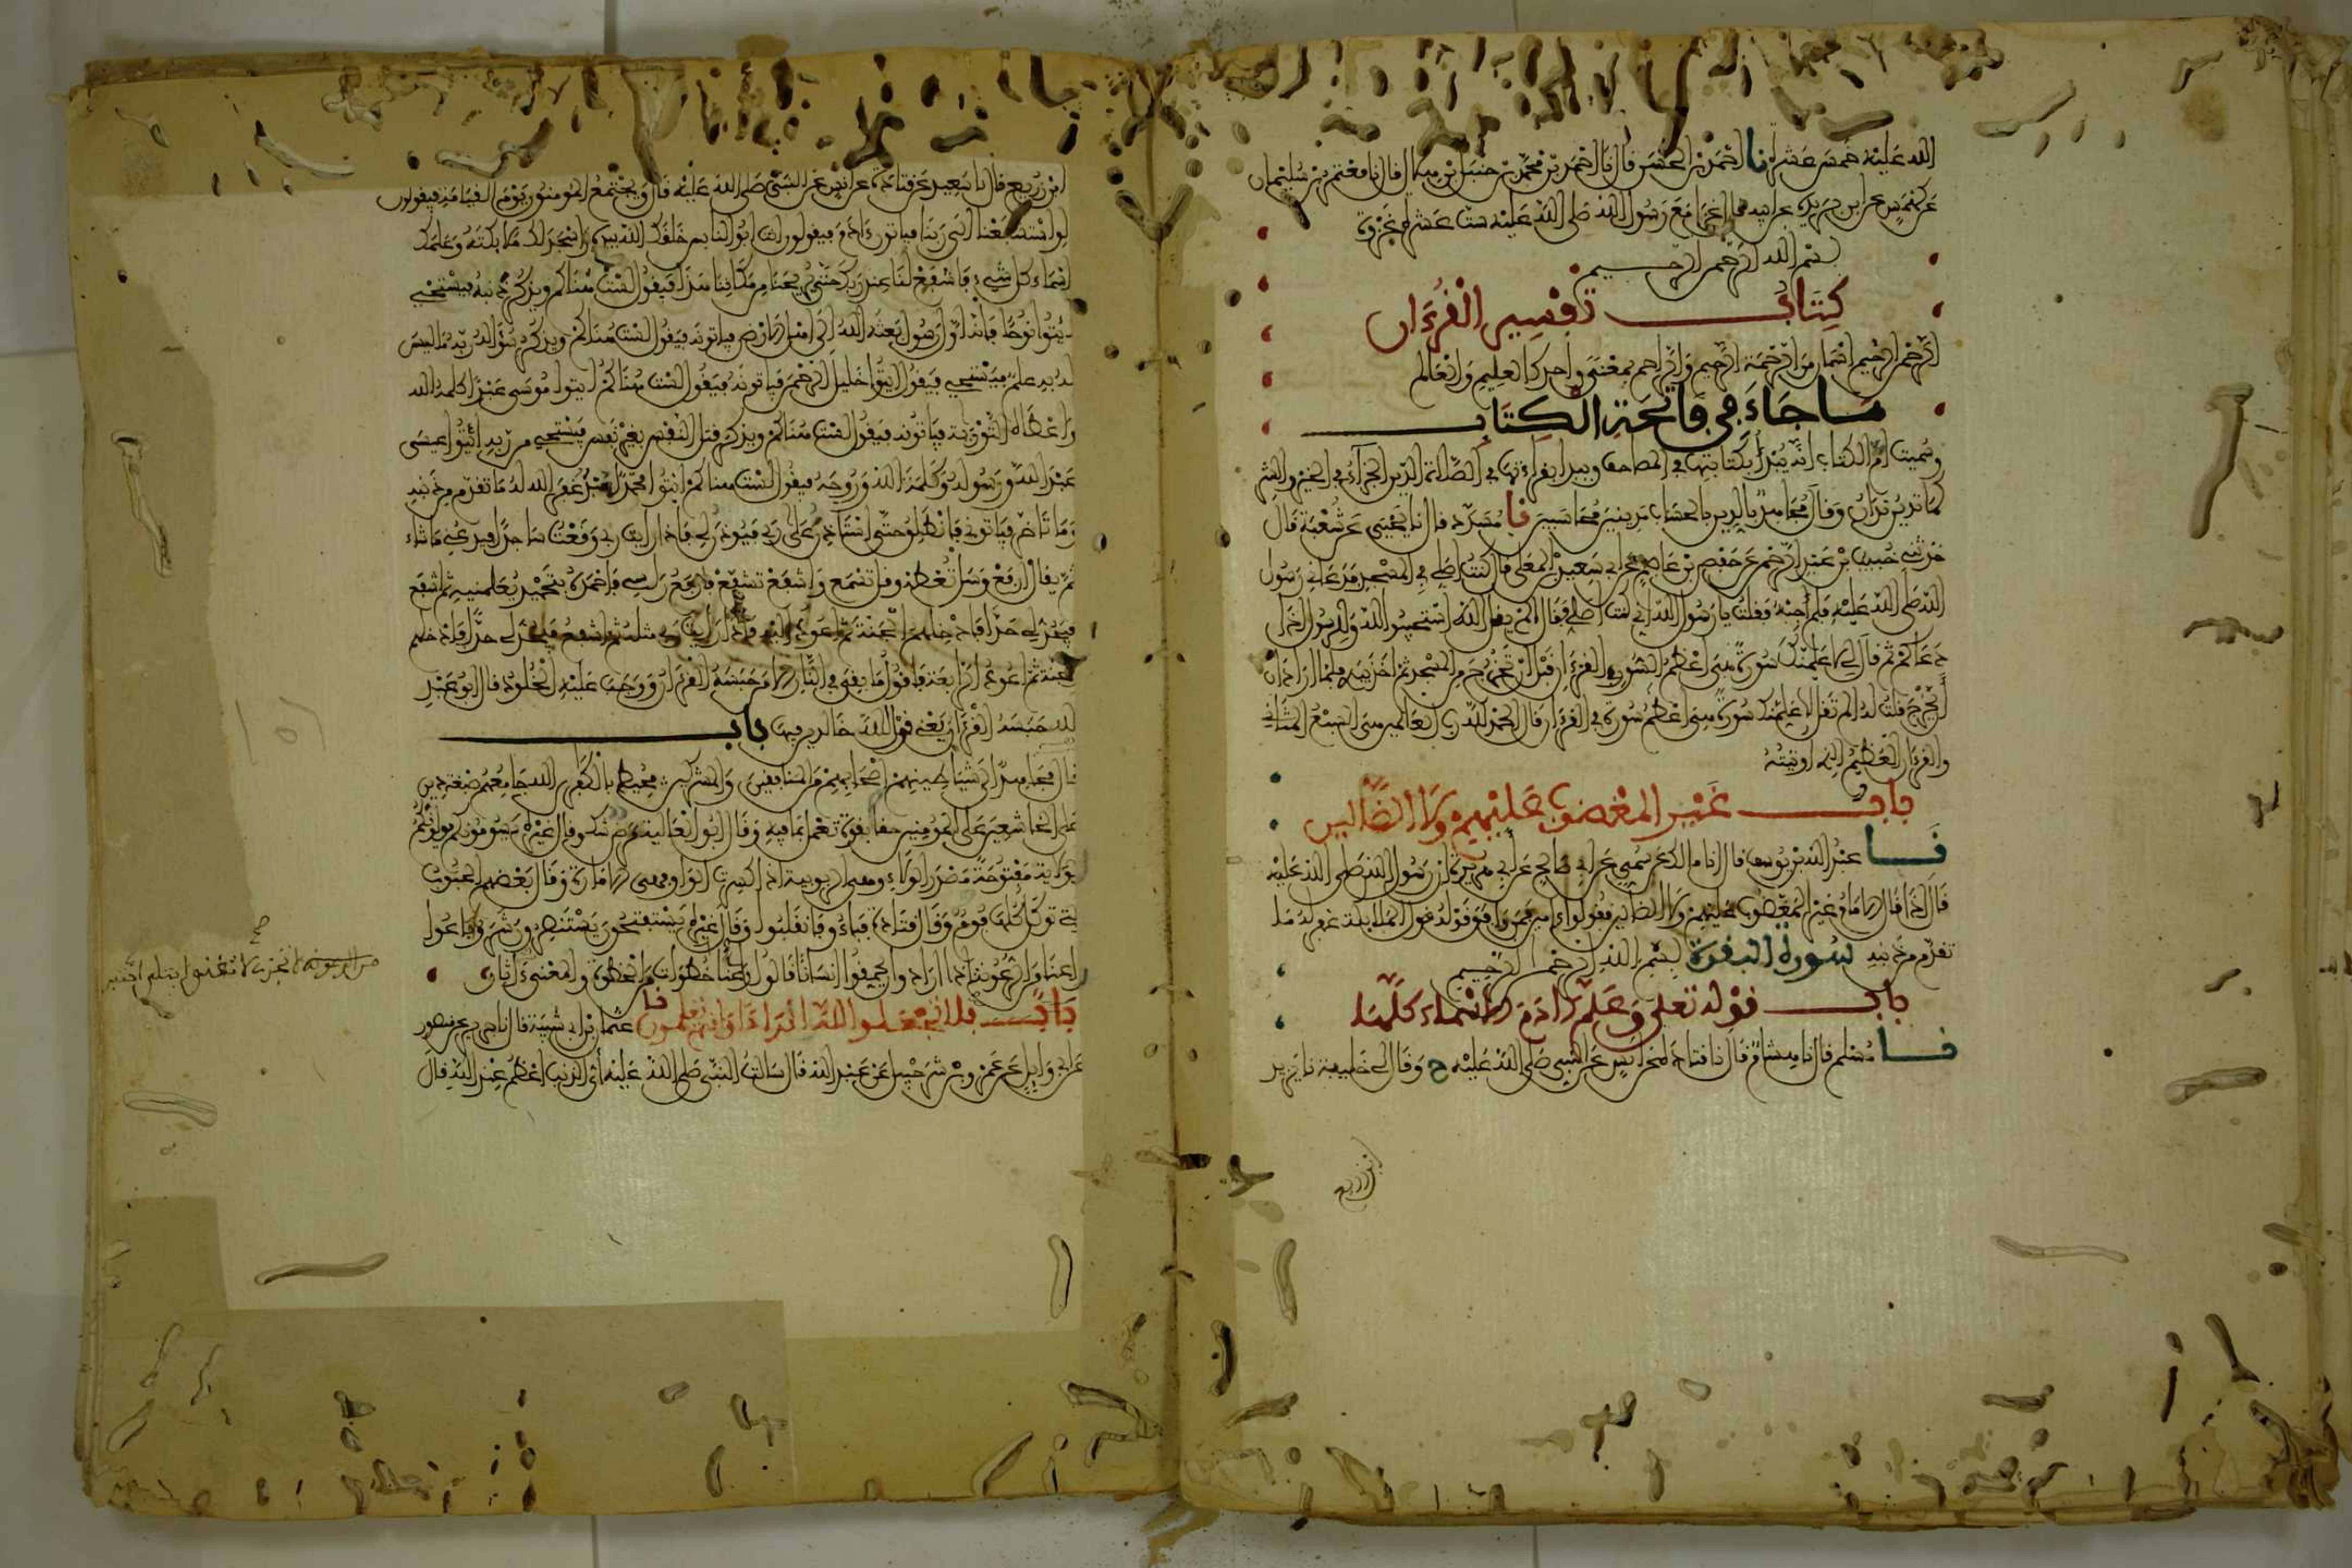 الله عليه خمس عشرة نا احمد بن الحسن قال نا احمد بن محمد بن حنبل بن هلال قال نا معتمر بن سليمان
عن كهمس عن ابن بريدة عن ابيه قال غزا مع رسول الله صلى الله عليه ست عشرة غزوة
بسم الله الرحمن الرحيم
كتاب تفسير القرءان
الرحمن الرحيم اسمان من الرحمة الرحيم والراحم بمعنى واحد كالعليم والعالم
ما جاء في فاتحة الكتاب
وسميت ام الكتاب انه يبدأ بكتابتها في المصاحف ويبدأ بقراءتها في الصلاة الدين الجزاء في الخير والشر
كما تدين تدان وقال مجاهد بالدين بالحساب مدينين محاسبين نا مسدد قال نا يحيى عن شعبة قال
حدثني خبيب بن عبد الرحمن عن حفص بن عاصم عن ابي سعيد بن المعلى قال كنت اصلي في المسجد فدعاني رسول
الله صلى الله عليه فلم اجبه فقلت يا رسول الله اني كنت اصلي فقال الم يقل الله استجيبوا لله وللرسول اذا
دعاكم ثم قال لي لاعلمنك سورة هي اعظم السور في القرءان قبل ان تخرج من المسجد ثم اخذ بيدي فلما اراد ان
يخرج قلت له الم تقل لاعلمنك سورة هي اعظم سورة في القرءان قال الحمد لله رب العالمين هي السبع المثاني
والقرءان العظيم الذي اوتيته
باب غير المغضوب عليهم ولا الضالين
نا عبد الله بن يوسف قال انا مالك عن سمي عن ابي صالح عن ابي هريرة ان رسول الله صلى الله عليه
قال اذا قال الامام غير المغضوب عليهم ولا الضالين فقولوا ءامين فمن وافق قوله قول الملائكة غفر له ما
تقدم من ذنبه سورة البقرة بسم الله الرحمن الرحيم
باب قوله تعلى وعلم ءادم الاسماء كلها
نا مسلم قال نا هشام قال نا قتادة عن انس عن النبي صلى الله عليه ح وقال لي خليفة نا يزيد
ابن زريع
ابن زريع قال نا سعيد عن قتادة عن انس عن النبي صلى الله عليه قال يجتمع المومنون يوم القيامة فيقولون
لو استشفعنا الى ربنا فياتون ءادم فيقولون انت ابو الناس خلقك الله بيده واسجد لك ملائكته وعلمك
اسماء كل شيء فاشفع لنا عند ربك حتى يريحنا من مكاننا هذا فيقول لست هناكم ويذكر ذنبه فيستحي
ايتوا نوحا فانه اول رسول بعثه الله الى اهل الارض فياتونه فيقول لست هناكم ويذكر سؤاله ربه ما ليس
له به علم فيستحي فيقول ايتوا خليل الرحمن فياتونه فيقول لست هناكم ايتوا موسى عبدا كلمه الله
واعطاه التورية فياتونه فيقول لست هناكم ويذكر قتل النفس بغير نفس فيستحي من ربه ائتوا عيسى
عبد الله ورسوله وكلمة الله وروحه فيقول لست هناكم ائتوا محمدا عبدا غفر الله له ما تقدم من ذنبه
وما تاخر فياتوني فانطلق حتى استاذن على ربي فيوذن لي فاذا رايت ربي وقعت ساجدا فيدعني ما شاء
ثم يقال ارفع وسل تعطه وقل تسمع واشفع تشفع فارفع راسي فاحمده بتحميد يعلمنيه ثم اشفع
فيحد لي حدا فادخلهم الجنة ثم اعود اليه فاذا رايت ربي مثله ثم اشفع فيحد لي حدا فادخلهم
الجنة ثم اعود الرابعة فاقول ما بقي في النار الا من حبسه القرءان ووجب عليه الخلود قال ابو عبد
الله حبسه القرءان يعني قول الله خالدين فيها باب
قال مجاهد الى شياطينهم اصحابهم من المنافقين والمشركين محيط بالكفرين الله جامعهم صبغة دين
على الخاشعين على المومنين حقا بقوة تعمل بما فيه وقال ابو العالية مرض شك وقال غيره يسومونكم يولونكم
الولاية مفتوحة مصدر الولاء وهي الربوبية اذا كسرت الواو فهي الامارة وقال بعضهم الحبوب
التي توكل كلها فوم وقال قتادة فباءو فانقلبوا وقال غيره يستفتحون يستنصرون شروا باعوا
راعنا من الرعونة اذا ارادوا ان يحمقوا انسانا قالوا راعنا خطوات من الخطو والمعنى ءاثاره
باب فلا تجعلوا لله اندادا وانتم تعلمون نا عثمان بن ابي شيبة قال نا جرير عن منصور
عن ابي وايل عن عمرو بن شرحبيل عن عبد الله قال سالت النبي صلى الله عليه اي الذنب اعظم عند الله قال
صح